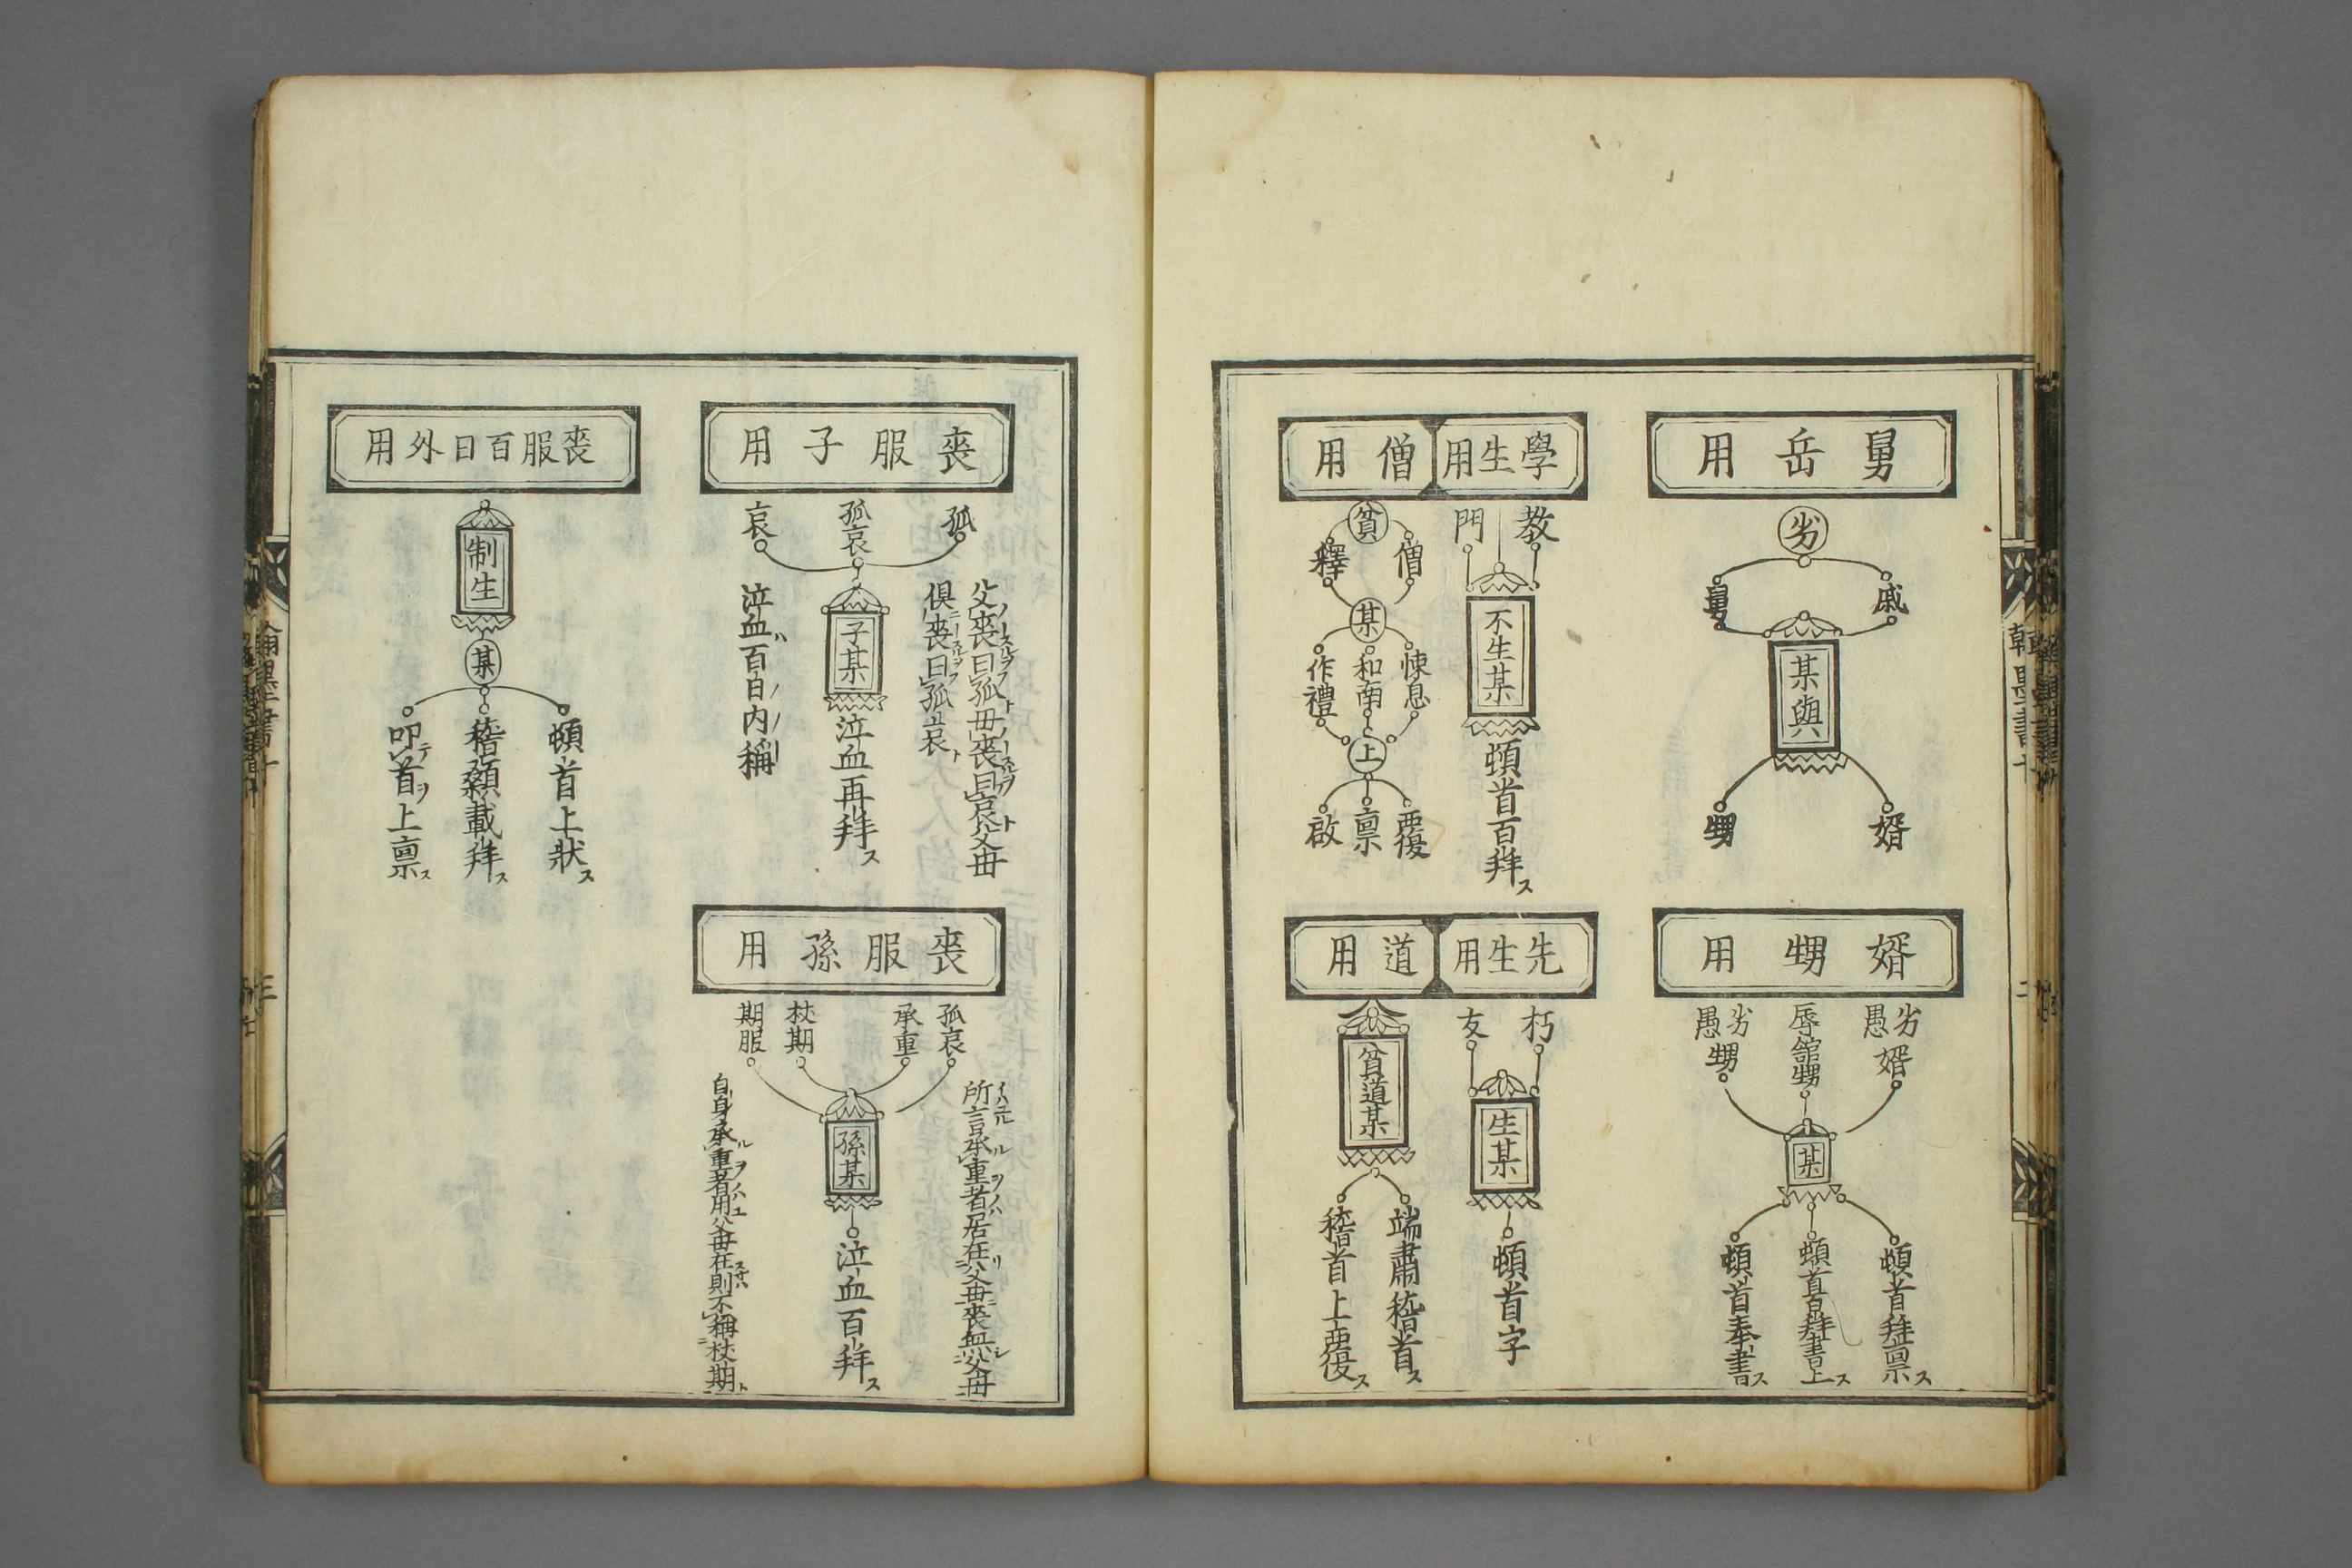 舅岳用
劣
戚
舅
某與
婿
甥
婿甥用
劣愚婿
辱舘甥
劣愚甥
某
頓首拜禀ス
頓首百拜書上ス
頓首奉書ス
學生用
教
門
不生某
頓首百拜ス
僧用
貧
僧
釋
某
悚息
和南
作禮
上
覆
禀
啟
先生用
朽
友
生某
頓首字
道用
貧道某
端肅稽首ス
稽首上覆ス
喪服子用
孤
孤哀
哀
父喪曰孤母喪曰哀父母
俱喪曰孤哀
子某
泣血再拜ス
泣血百日内稱
喪服孫用
孤哀
承重
杖期
期服
所言承重者居在父母喪無父母
孫某
泣血百拜ス
自身承重者用父母在則不稱杖期
喪服百日外用
制生
某
頓首上狀ス
稽顙載拜ス
叩首上禀ス